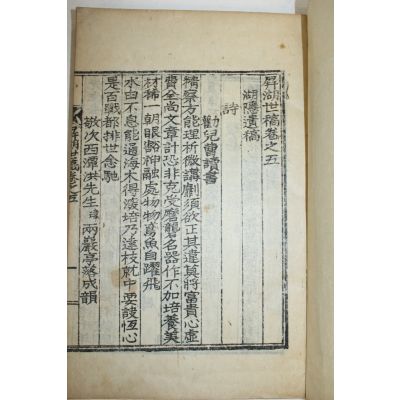 昇湖世稿卷之五
湖隱遺稿
詩
勸兒曹讀書
精察方能理析微講劘須欲正其違莫將富貴心虛
費全尚文章計恐非克受磨礱名器作不加培養美
材稀一朝眼豁神融處物物鳶魚自躍飛
水臼不息能通海木得滋培乃達枝就中要設恆心
是百戰都排世念馳
敬次西潭洪先生瑋兩巖亭落成韻
昇湖世稿卷之五